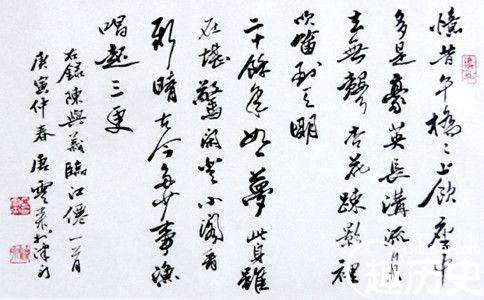 憶昔午橋〻上飲座中
多是豪英長溝流月
去無聲杏花疎影裡
吹笛到天明
二十餘年如一夢此身雖
在堪驚閑登小閣看
新晴古今多少事漁
唱起三更
右錄陳與義臨江僊一首
庚寅仲春唐雲來於津門
趣历史